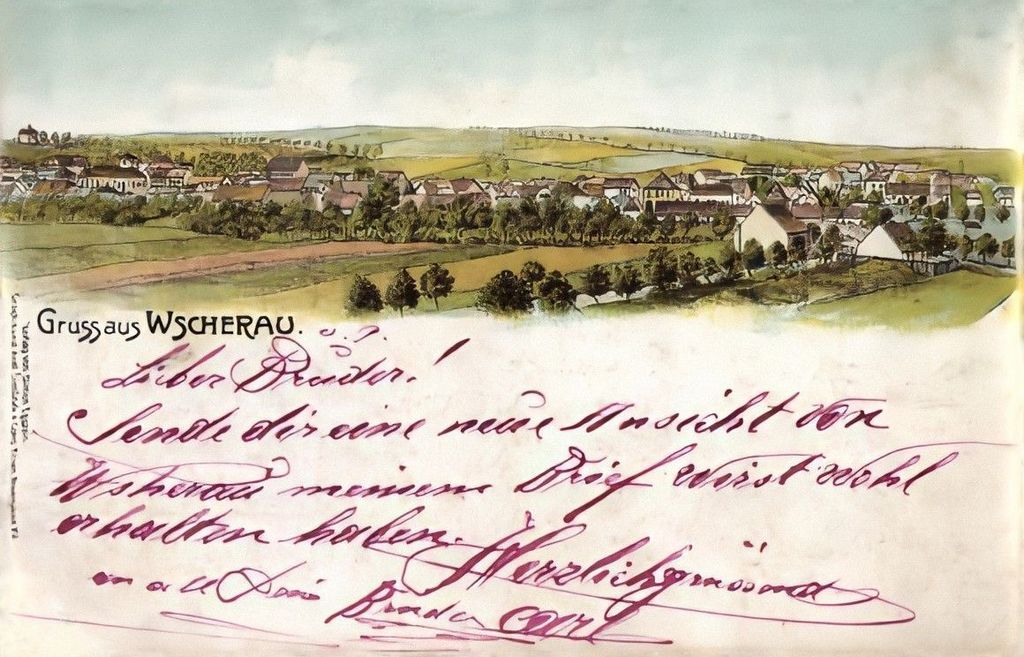 Gruss aus WSCHERAU.
Lieber Bruder!
Sende dir eine neue Ansicht von
Wsherau meinem Brief wirst wohl
erhalten haben. Herzlich
Dein Bruder Carl